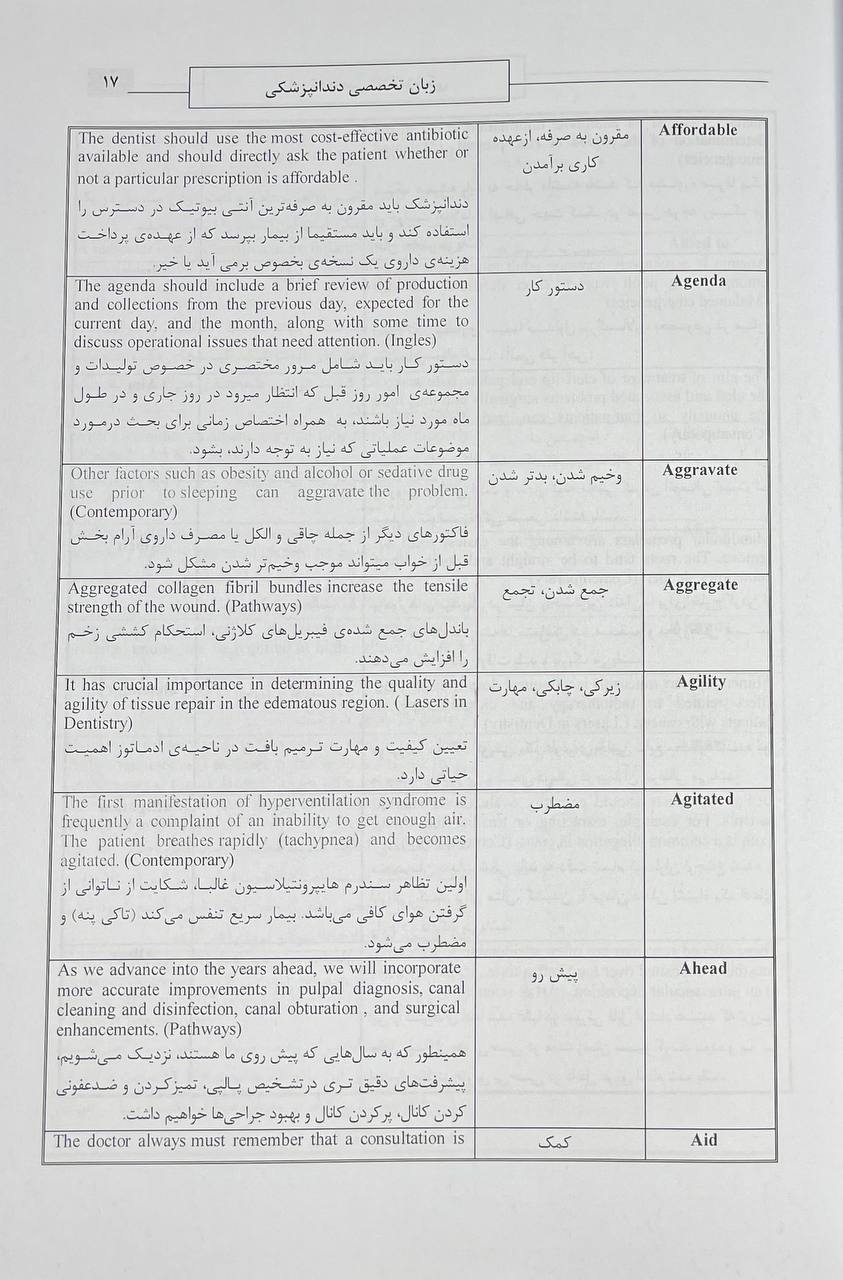 زبان تخصصی دندانپزشکی
۱۷
Affordable
مقرون به صرفه، ازعهده
کاری برآمدن
The dentist should use the most cost-effective antibiotic
available and should directly ask the patient whether or
not a particular prescription is affordable .
دندانپزشک باید مقرون به صرفه‌ترین آنتی بیوتیک در دسترس را
استفاده کند و باید مستقیما از بیمار بپرسد که از عهده‌ی پرداخت
هزینه‌ی داروی یک نسخه‌ی بخصوص برمی آید یا خیر.
Agenda
دستور کار
The agenda should include a brief review of production
and collections from the previous day, expected for the
current day, and the month, along with some time to
discuss operational issues that need attention. (Ingles)
دستور کار باید شامل مرور مختصری در خصوص تولیدات و
مجموعه‌ی امور روز قبل که انتظار میرود در روز جاری و در طول
ماه مورد نیاز باشند، به همراه اختصاص زمانی برای بحث درمورد
موضوعات عملیاتی که نیاز به توجه دارند، بشود.
Aggravate
وخیم شدن، بدتر شدن
Other factors such as obesity and alcohol or sedative drug
use prior to sleeping can aggravate the problem.
(Contemporary)
فاکتورهای دیگر از جمله چاقی و الکل یا مصرف داروی آرام بخش
قبل از خواب میتواند موجب وخیم‌تر شدن مشکل شود.
Aggregate
جمع شدن، تجمع
Aggregated collagen fibril bundles increase the tensile
strength of the wound. (Pathways)
باندل‌های جمع شده‌ی فیبریل‌های کلاژنی، استحکام کششی زخم
را افزایش می‌دهند.
Agility
زیرکی، چابکی، مهارت
It has crucial importance in determining the quality and
agility of tissue repair in the edematous region. ( Lasers in
Dentistry)
تعیین کیفیت و مهارت ترمیم بافت در ناحیه‌ی ادماتوز اهمیت
حیاتی دارد.
Agitated
مضطرب
The first manifestation of hyperventilation syndrome is
frequently a complaint of an inability to get enough air.
The patient breathes rapidly (tachypnea) and becomes
agitated. (Contemporary)
اولین تظاهر سندرم هایپرونتیلاسیون غالبا، شکایت از ناتوانی از
گرفتن هوای کافی می‌باشد. بیمار سریع تنفس می‌کند (تاکی پنه) و
مضطرب می‌شود.
Ahead
پیش رو
As we advance into the years ahead, we will incorporate
more accurate improvements in pulpal diagnosis, canal
cleaning and disinfection, canal obturation , and surgical
enhancements. (Pathways)
همینطور که به سال‌هایی که پیش روی ما هستند، نزدیک می‌شویم،
پیشرفت‌های دقیق تری درتشخیص پالپی، تمیزکردن و ضدعفونی
کردن کانال، پرکردن کانال و بهبود جراحی‌ها خواهیم داشت.
Aid
کمک
The doctor always must remember that a consultation is